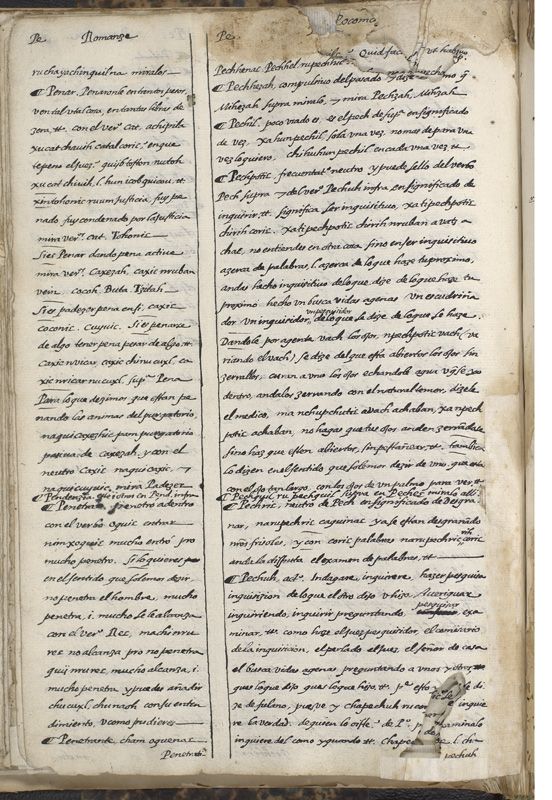 Pe Romanze
ruchayachinquilna miralos
¶ Penar, Penaronle entandos pesos,
ven tal vtal cosa, entandas libras de
zera, &t. con el verº cat. achipila
xucat chauih catal coric. enque
te peno el juez. quisbotton nutoh
xucat chiuih, l. hun icolquicau, &t
xintohoric ruum justicia, fuy pe
nado fuy condenado por la justicia
mira verº cat. Tohonic
Si es Penar dando pena active
mira verº Caxezah, caxic nruban
vein. cocoh. Buta. Tzdah
Si es padezer pena en si; caxic
coconic. Cuyuic. Si es penarse
de algo tener pena pesar de algo &t
caxic nvicar, caxic chinucuxl, ca
xic nricar nucuxl, supª Pena
Para lo que dezimos que estan pe
nando las animas del purgatorio,
naqui caxehic pam purgatorio
passiua de caxezah, y con el
neutro Caxic naquicaxic,
naquicuyuic, mira Padezer
¶ Pendenzia
¶ Penetrar, prenotro adentro
con el verbo oquic entrar
nim xoquic mucho entró pro
mucho penetro. Si lo quieres
en el sentido que solemos dezir
no penetra el hombre, mucho
penetra, i. mucho se le alcanza
con el verº Rec, machi nru
rec no alcanza pro no penetra
qui nrurec, mucho alcanza, i.
mucho penetra, y puedes añadir
chucuxl, chunaoh con su enten
dimiento, v como pudieres
¶ Penetrante, cham oquenac
Penetrante
Pe Pocomo
Quid fac
Pechhenac Pechhel rupechhic
¶ Pechhezah, compulsivo del pasado
Mihezah supra miralo, mira Pechzah, Mihzah
¶ Pechil, poco vsado es, es el pech de supª en significado
de vez. xa hun pechil, sola vna vez, nomas de para vna
vez lo quiero, chihuhun pechil, en cada vna vez &t
¶ Pechpotic, frecuentatº neutro y puede sello del verbo
Pech supra del verº Pechuh infra en significado de
inquirir, &t. significa ser inquisitiuo, xati pechpotic
chirih coric. xati pechpotic chirih nruban avatz a
chac, no entiendes en otra cosa sino en ser inquisitiuo
azerca de palabras, l. azerca de lo que haze tu proximo,
andas hecho inquisitiuo de lo que dize de lo que haze tu
proximo hecho vn busca vidas agenas vn escudriña
dor vn inquisidor, de lo que se dize de lo que se haze
Dandole por agente vach los ojos, npechpotic vach (va
riando el vach) se dize del que esta abiertos los ojos sin
zerrallos, curan a vno los ojos echandole agua vgªse yos
dentro, andalos zerrando con el natural temor, dizele
el medico, ma nehupchutic avach achaban, xa npech
potic achaban, no hagas que tus ojos anden zerrandose
sino haz que esten abiertos, sin pestañear, &t. tambien
lo dizen en el sentido que solemos dezir de vno que esta
con el ojo tan largo, con los ojos de vn palmo para ver, &t
¶ Pechquil, ru pechquil supra en Pechez miralo alli
¶ Pechric, neutro de Pech en significado de Desgra
nar, nam pechric caquinac ya se estan desgranado
nros frisoles, y con coric palabras nam pechric coric
anda la disputa el examen de palabras, &t
¶ Pechuh, adº. Indagare, inquirere, hazer pesquisa
inquisizion de lo que el otro dijo v hizo, Averiguar
inquiriendo, inquirir preguntando pesquisar exa
minar, &t. como haze el juez pesquisidor, el comisario
de la inquisizion, el perlado el juez, el señor de casa
el busca vidas agenas preguntando a vnos y otros
que es lo que dijo que es lo que hizo, &t. pª esto se di
ze de fulano, pues ve y chapechuh inquie
re la verdad. de quien lo oiste. de Pº, pª examinalo
inquiere del como y quando &t. Chape l. cha
pechuh